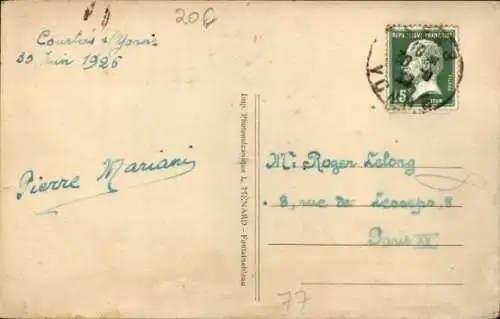 20€
Courtois s/Yonne
30 Juin 1926
Pierre Mariani
Imp. Photomécanique L. MÉNARD - Fontainebleau
REPUBLIQUE FRANÇAISE
POSTES
15
Mr Roger Lelong
8, rue de Lesseps, 8
Paris XX
77